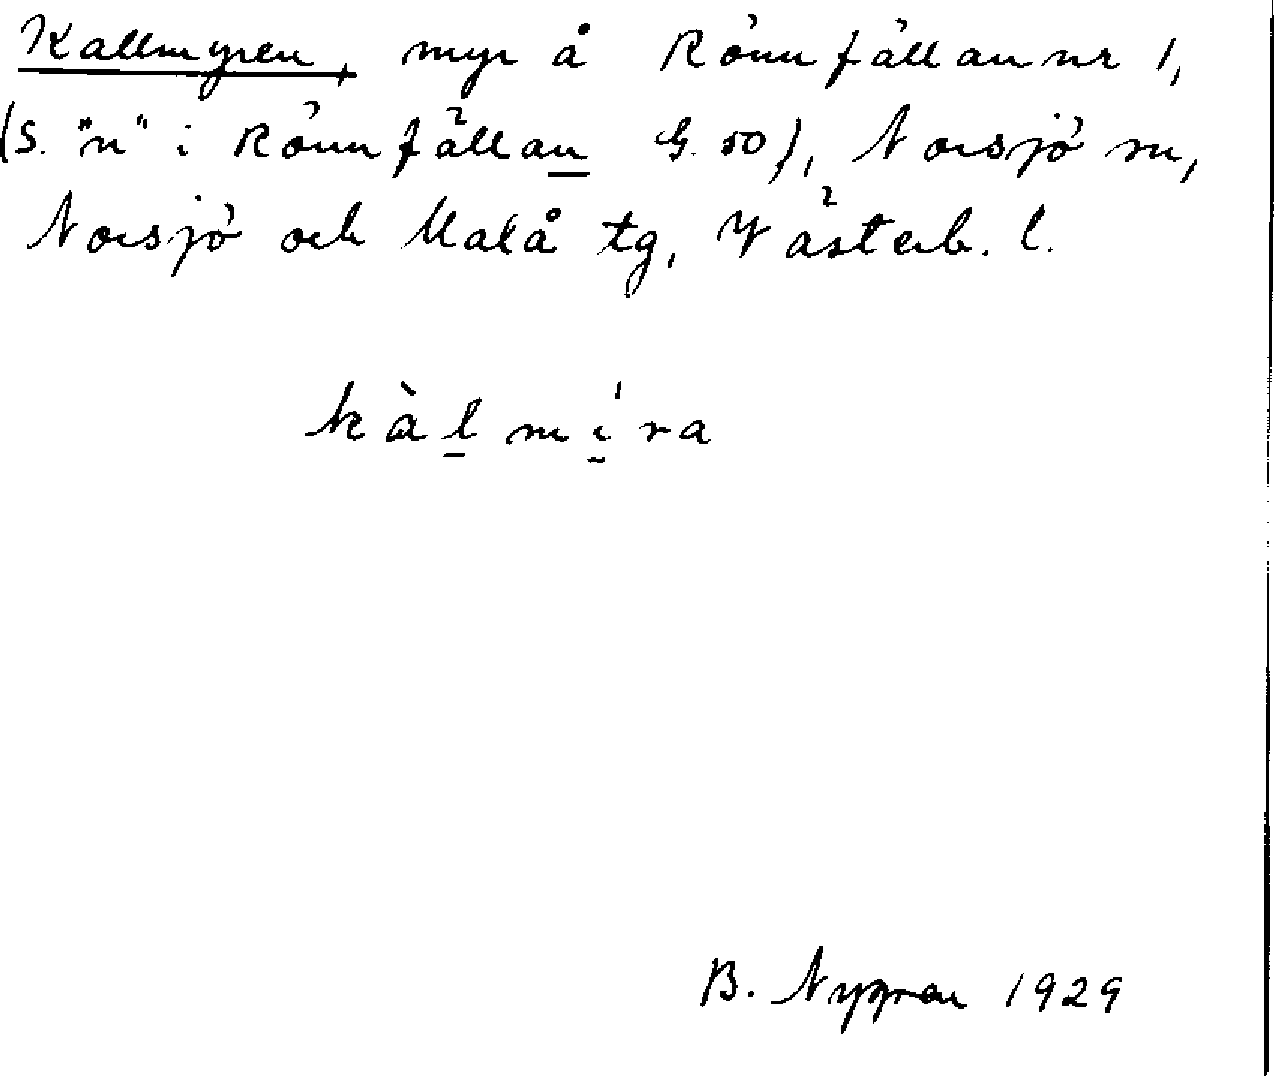 Kallmyren, myr å Rönnfällan nr 1,
(S. "n" i Rönnfällan G. 50), Norsjö sn,
Norsjö och Malå tg, Västerb. l.
kàl̠mí̠ra
B. Nygren 1929